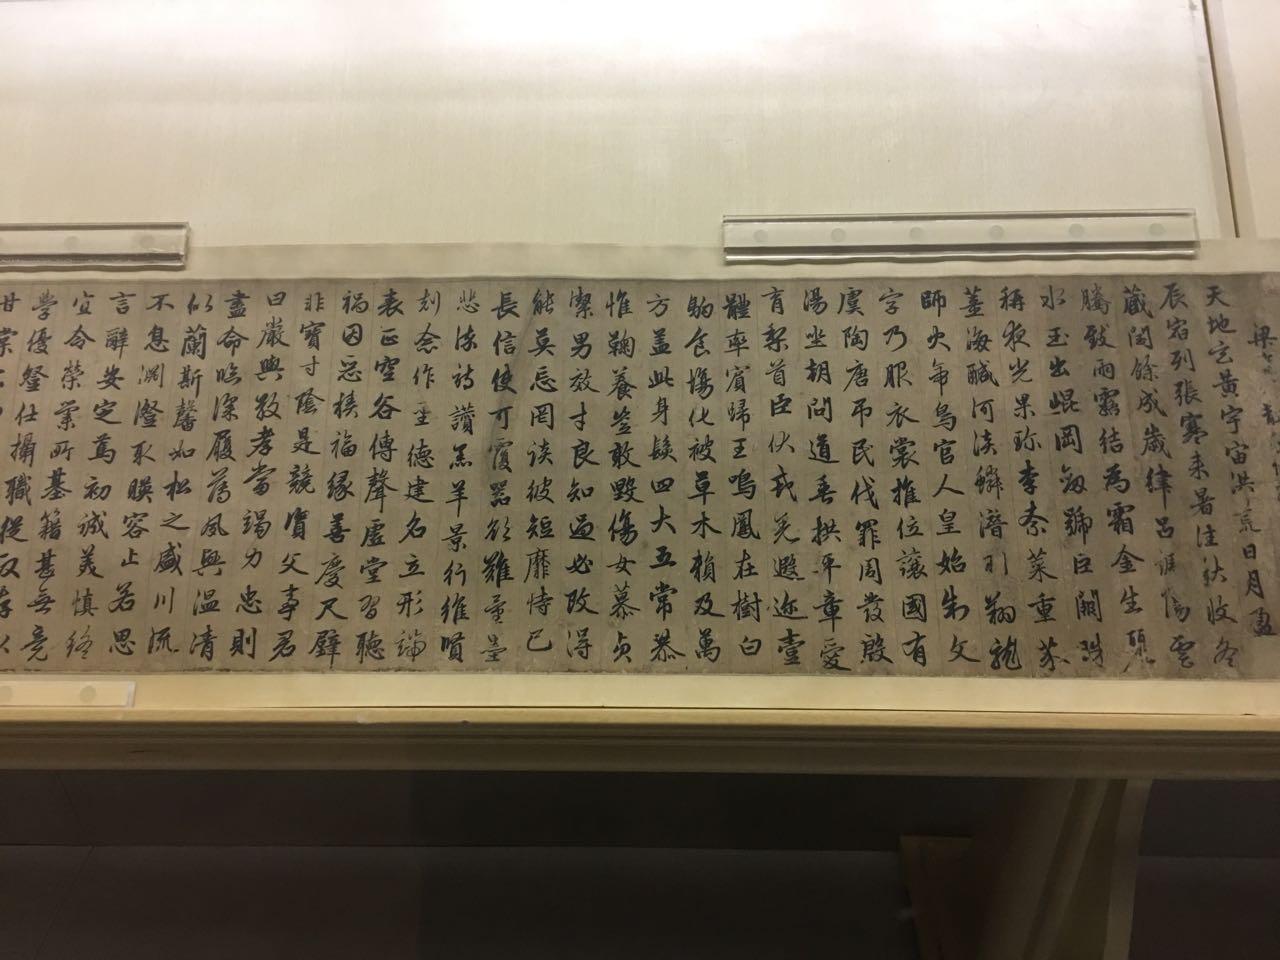 梁
天地玄黃宇宙洪荒日月盈
辰宿列張寒来暑往秋收冬
蔵閏餘成歲律呂調陽雲
騰致雨露結為霜金生麗
水玉出崐岡劒號巨闕珠
稱夜光果珍李柰菜重芥
薑海醎河淡鱗潛羽翔龍
師火帝鳥官人皇始制文
字乃服衣裳推位讓國有
虞陶唐吊民伐罪周發殷
湯坐朝問道垂拱平章愛
育黎首臣伏戎羌遐迩壹
體率賓歸王鳴鳳在樹白
駒食場化被草木賴及萬
方蓋此身髮四大五常恭
惟鞠養豈敢毀傷女慕貞
潔男效才良知過必改得
能莫忘罔談彼短靡恃己
長信使可覆器欲難量墨
悲絲詩讚羔羊景行維賢
剋念作聖德建名立形端
表正空谷傳聲虛堂習聽
禍因惡積福緣善慶尺璧
非寶寸陰是競資父事君
曰嚴與敬孝當竭力忠則
盡命臨深履薄夙興温清
似蘭斯馨如松之盛川流
不息淵澄取暎容止若思
言辭安定篤初誠美慎終
宜令榮業所基籍甚無竟
學優登仕攝職從政存以
甘棠